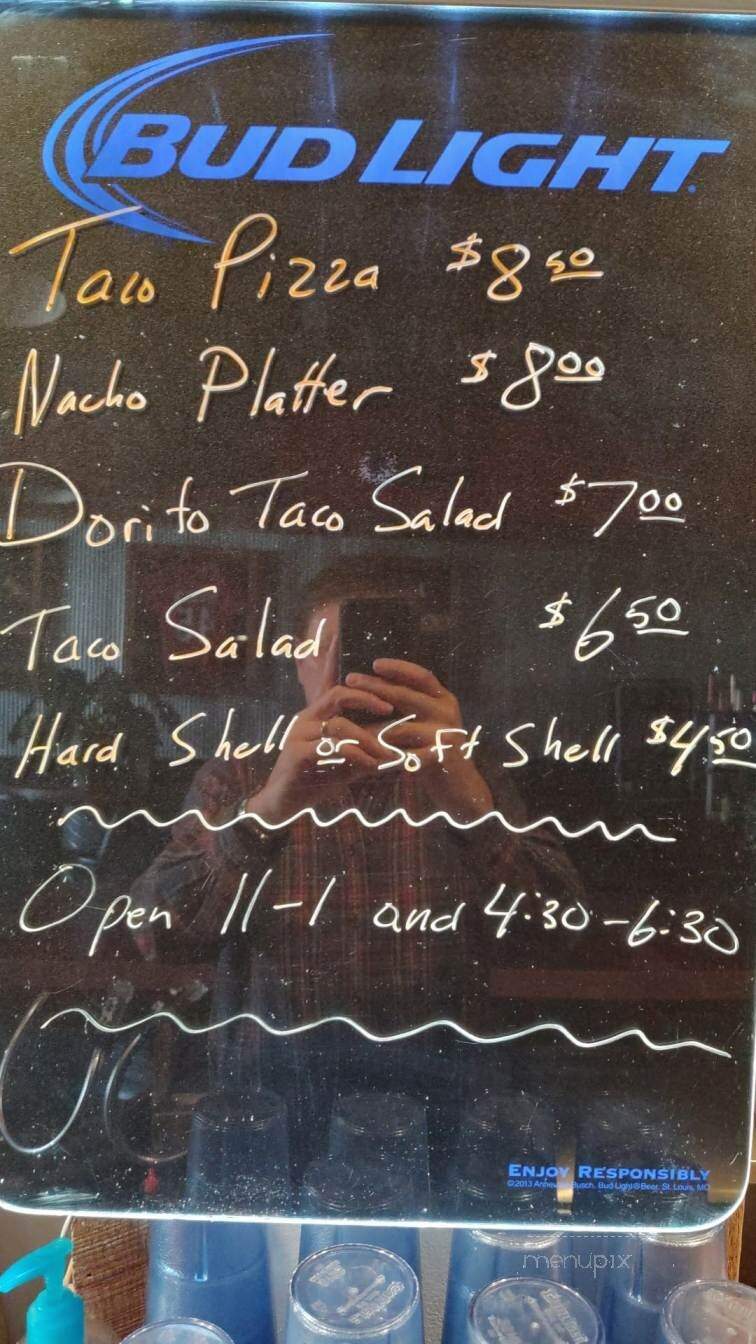 BUD LIGHT
Taco Pizza $8 50
Nacho Platter $8 00
Dorito Taco Salad $7 00
Taco Salad $6 50
Hard Shell or Soft Shell $4 50
Open 11-1 and 4:30-6:30
ENJOY RESPONSIBLY
©2013 Anheuser-Busch, Bud Light® Beer, St. Louis, MO
menupix